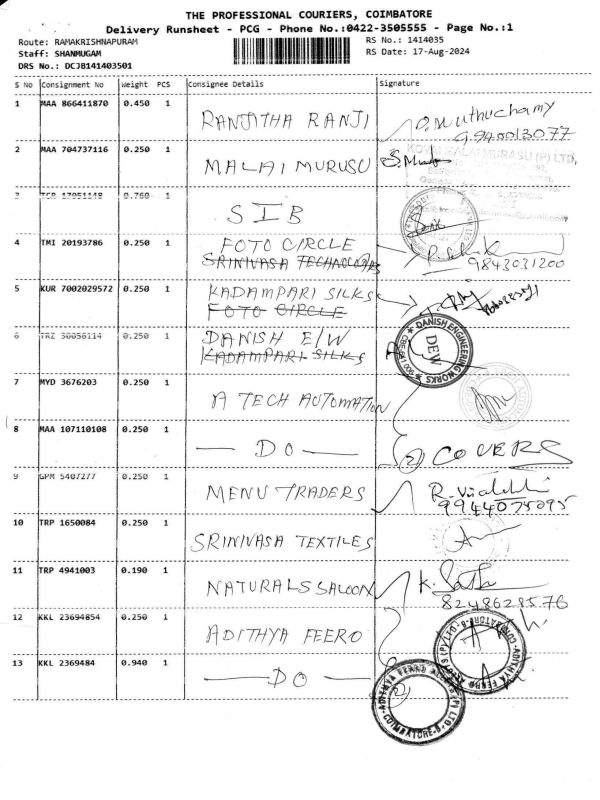 THE PROFESSIONAL COURIERS, COIMBATORE
Delivery Runsheet - PCG - Phone No.:0422-3505555 - Page No.:1
Route: RAMAKRISHNAPURAM
RS No.: 1414035
Staff: SHANMUGAM
RS Date: 17-Aug-2024
DRS No.: DCJB141403501
S No Consignment No Weight PCS Consignee Details Signature
1 MAA 866411870 0.450 1 RANJITHA RANJI O.Muthuchamy
9940013077
2 MAA 704737116 0.250 1 MALAI MURUSU
KOVAI MALAI MURASU (P) LTD,
3 TCR 17051148 0.760 1 SIB
4 TMI 20193786 0.250 1 FOTO CIRCLE
SRINIVASA TECHNOLOGIES
9843031200
5 KUR 7002029572 0.250 1 KADAMPARI SILKS
FOTO CIRCLE
6 TRZ 50056114 0.250 1 DANISH E/W
KADAMPARI SILKS
DANISH ENGINEERING WORKS
DEW
7 MYD 3676203 0.250 1 A TECH AUTOMATION
8 MAA 107110108 0.250 1 — DO — (2) COVERS
9 GPM 5407277 0.250 1 MENU TRADERS
9944075095
10 TRP 1650084 0.250 1 SRINIVASA TEXTILES
11 TRP 4941003 0.190 1 NATURALS SALOON K. Satha
8248628576
12 KKL 23694854 0.250 1 ADITHYA FEERO
13 KKL 2369484 0.940 1 — DO — (2)
ADITHYA FERRO ALLOYS (P) LTD
COIMBATORE-8